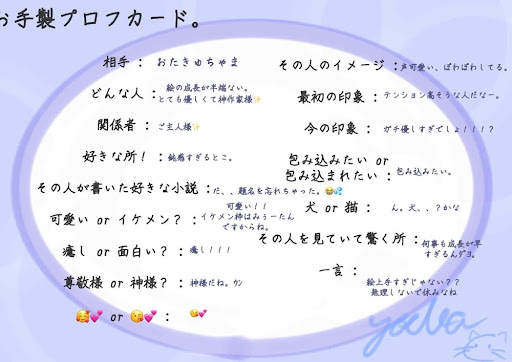 お手製プロフカード。
相手 : おたきゅちゃま
どんな人 : 絵の成長が半端ない。
とても優しくて神作家様✨
関係者 : ご主人様✨
好きな所! : 鈍感すぎるとこ。
その人が書いた好きな小説 : だ、、題名を忘れちゃった。😭💦
可愛い or イケメン? : 可愛い!!
イケメン枠はみぅーたん
ですからね。
癒し or 面白い? : 癒し!!!
尊敬様 or 神様? : 神様だね。ウン
🥰💕 or 😘💕 : 😘💕
その人のイメージ : 声可愛い、ぽわぽわしてる。
最初の印象 : テンション高そうな人だなー。
今の印象 : ガチ優しすぎでしょ!!!?
包み込みたい or
包み込まれたい : 包み込みたい。
犬 or 猫 : ん。犬、、?かな
その人を見ていて驚く所 : 何事も成長が早
すぎるんデヨ。
一言 : 絵上手すぎじゃない??
無理しないで休みなね